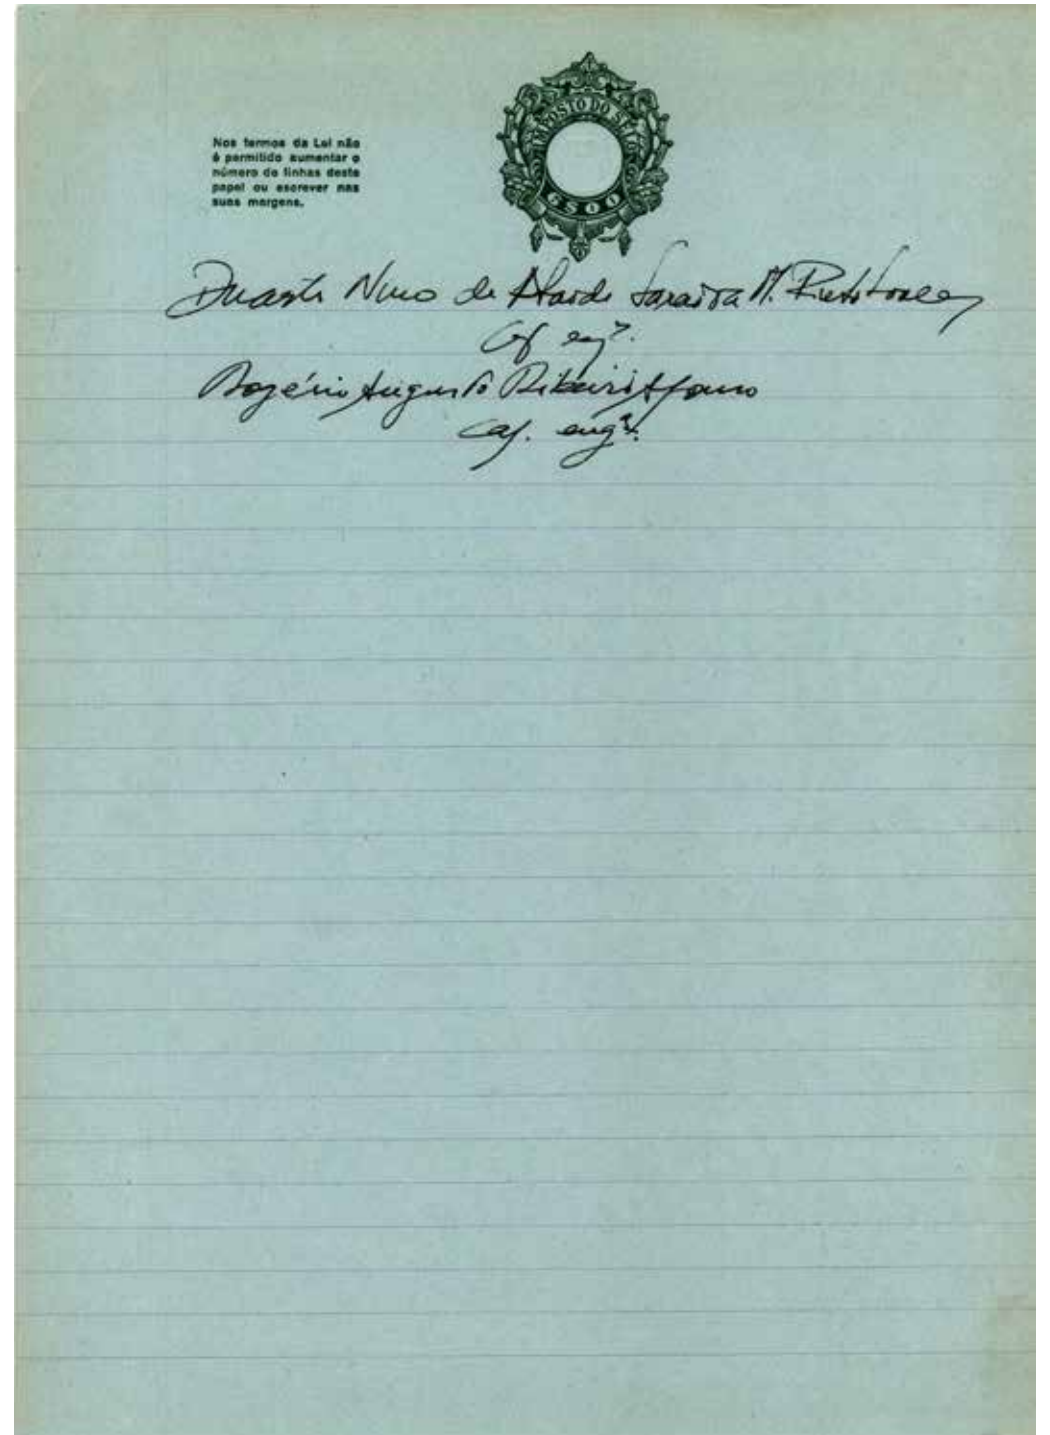 Nos termos da Lei não
é permitido aumentar o
número de linhas deste
papel ou escrever nas
suas margens.
IMPOSTO DO SELO
5$00
Duarte Nuno de Ataíde Saraiva M. Pinto Soares
Cap. engº.
Rogério Augusto Ribeiro Afonso
Cap. engº.